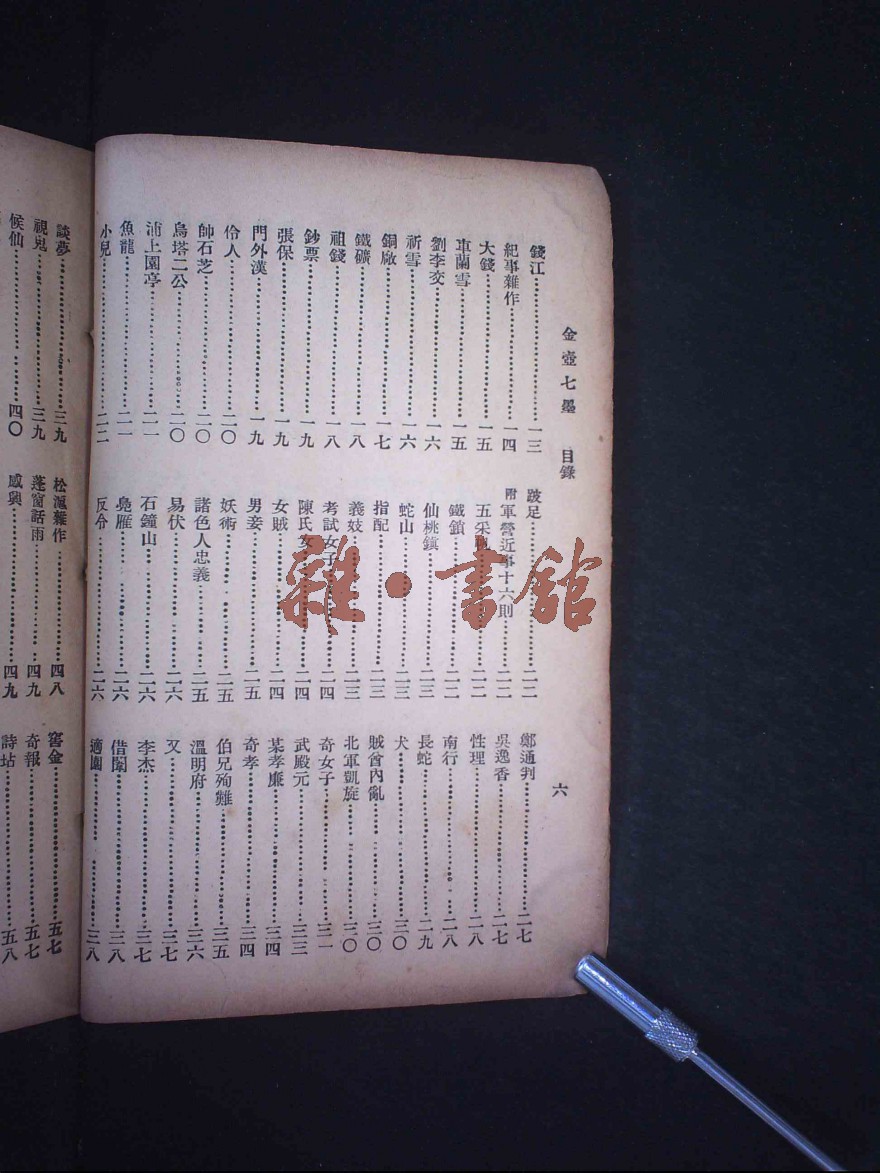 金壺七墨　目錄　六
錢江……一三
紀事雜作……一四
大錢……一五
車蘭雪……一五
劉李交……一六
祈雪……一六
銅廠……一七
鐵礦……一八
祖錢……一八
鈔票……一九
張保……一九
門外漢……一九
伶人……二〇
帥石芝……二〇
烏塔二公……二〇
浦上園亭……二一
魚龍……二一
小兒……二二
跛足……二二
附軍營近事十六則……二二
五采……二二
鐵鎖……二二
仙桃鎮……二三
蛇山……二三
指配……二三
義妓……二三
考試女子……二四
陳氏女……二四
女賊……二四
男妾……二五
妖術……二五
諸色人忠義……二五
易伏……二六
石鐘山……二六
鳧雁……二六
反令……二六
鄭通判……二七
吳逸香……二七
性理……二八
南行……二八
長蛇……二九
犬……三〇
賊酋內亂……三〇
北軍凱旋……三〇
奇女子……三一
武殿元……三三
某孝廉……三四
奇孝……三四
伯兄殉難……三五
溫明府……三六
又……三七
李杰……三七
借闈……三八
適園……三八
談夢……三九
視鬼……三九
候仙……四〇
松滬雜作……四八
蓬窗話雨……四九
感興……四九
窖金……五七
奇報……五七
詩坫……五八
雜·書館